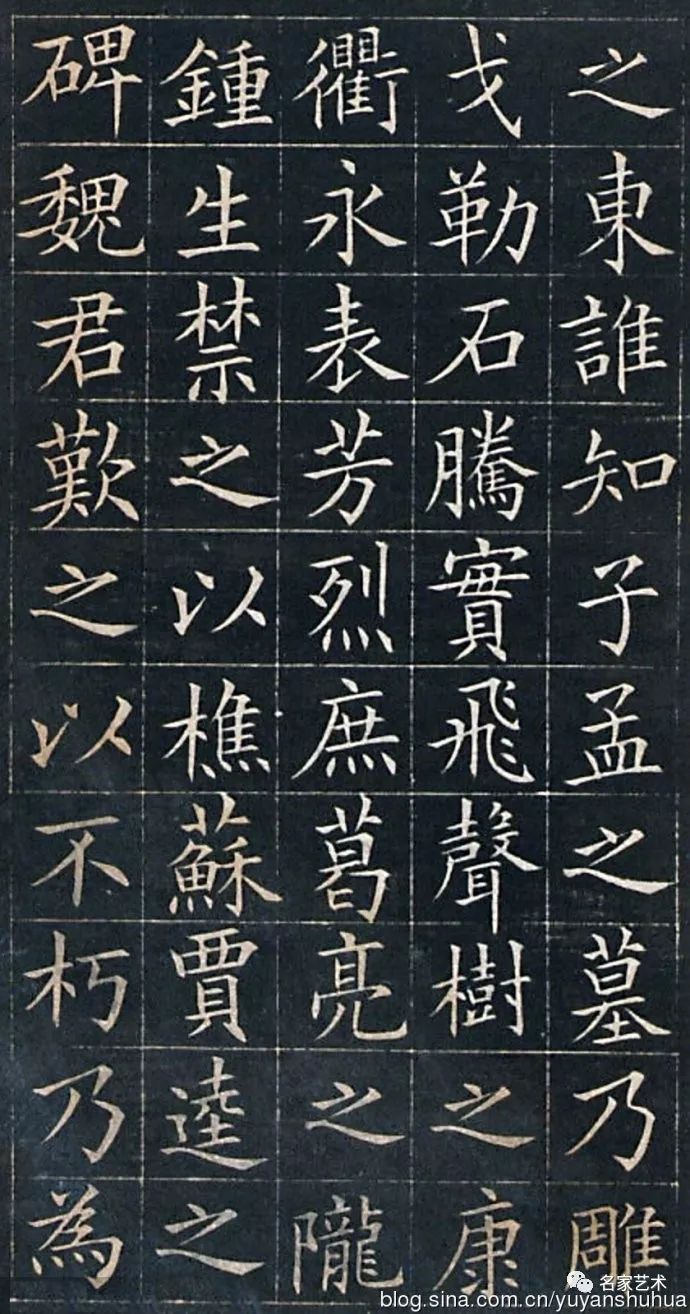 之東誰知子孟之墓乃雕
戈勒石騰實飛聲樹之康
衢永表芳烈庶葛亮之隴
鍾生禁之以樵蘇賈逵之
碑魏君歎之以不朽乃為
名家艺术
blog.sina.com.cn/yuyanshuhua